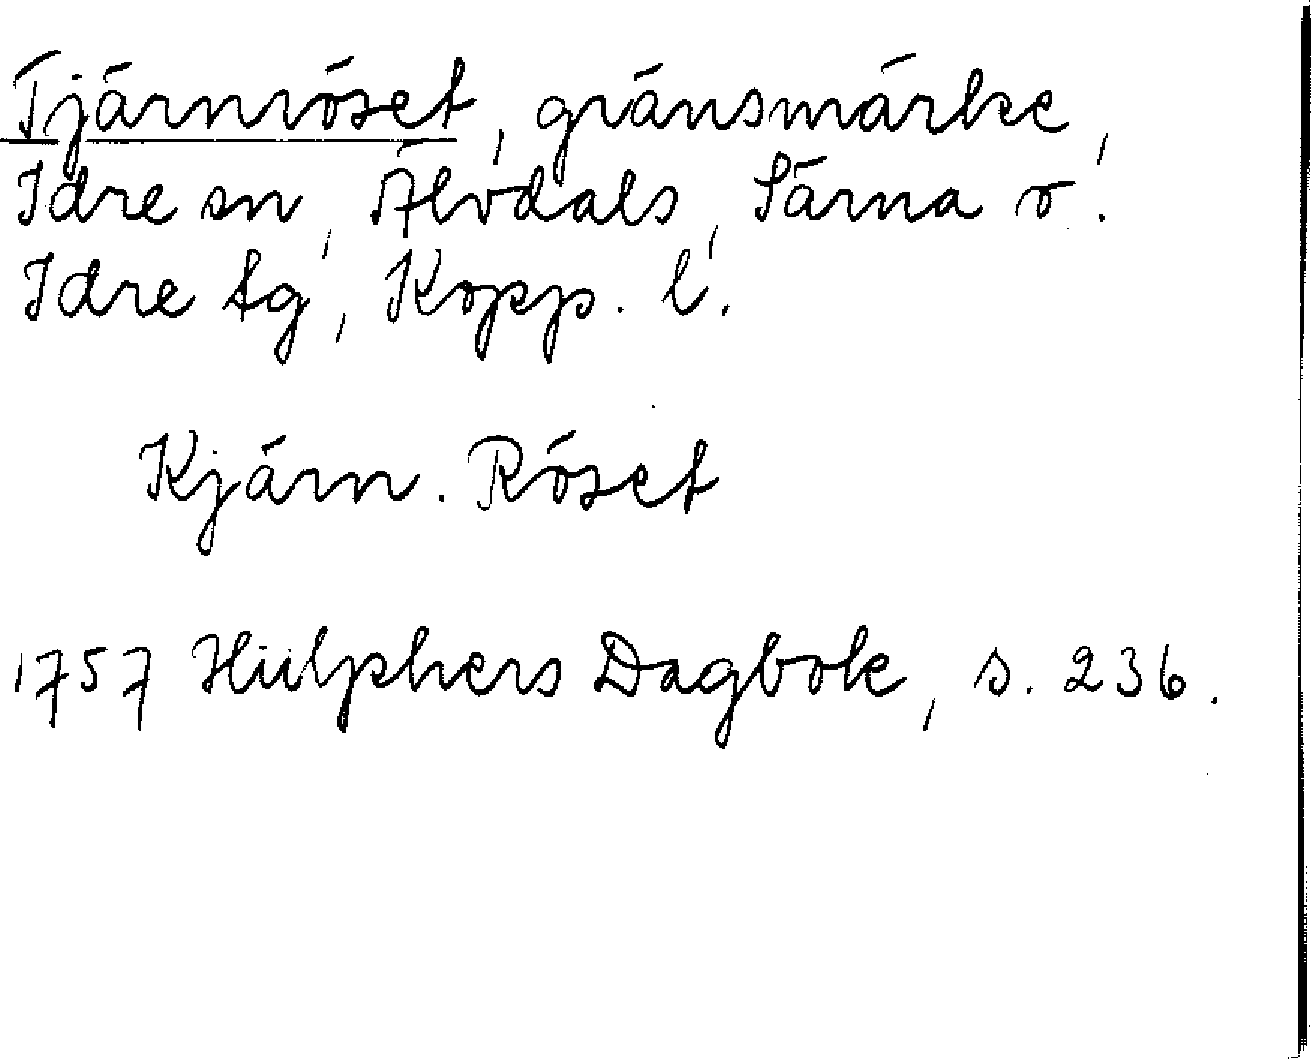 Tjärnröset, gränsmärke,
Idre sn, Älvdals, Särna o.
Idre tg, Kopp. l.
Kjärn. Röset
1757 Hülphers Dagbok, s. 236.